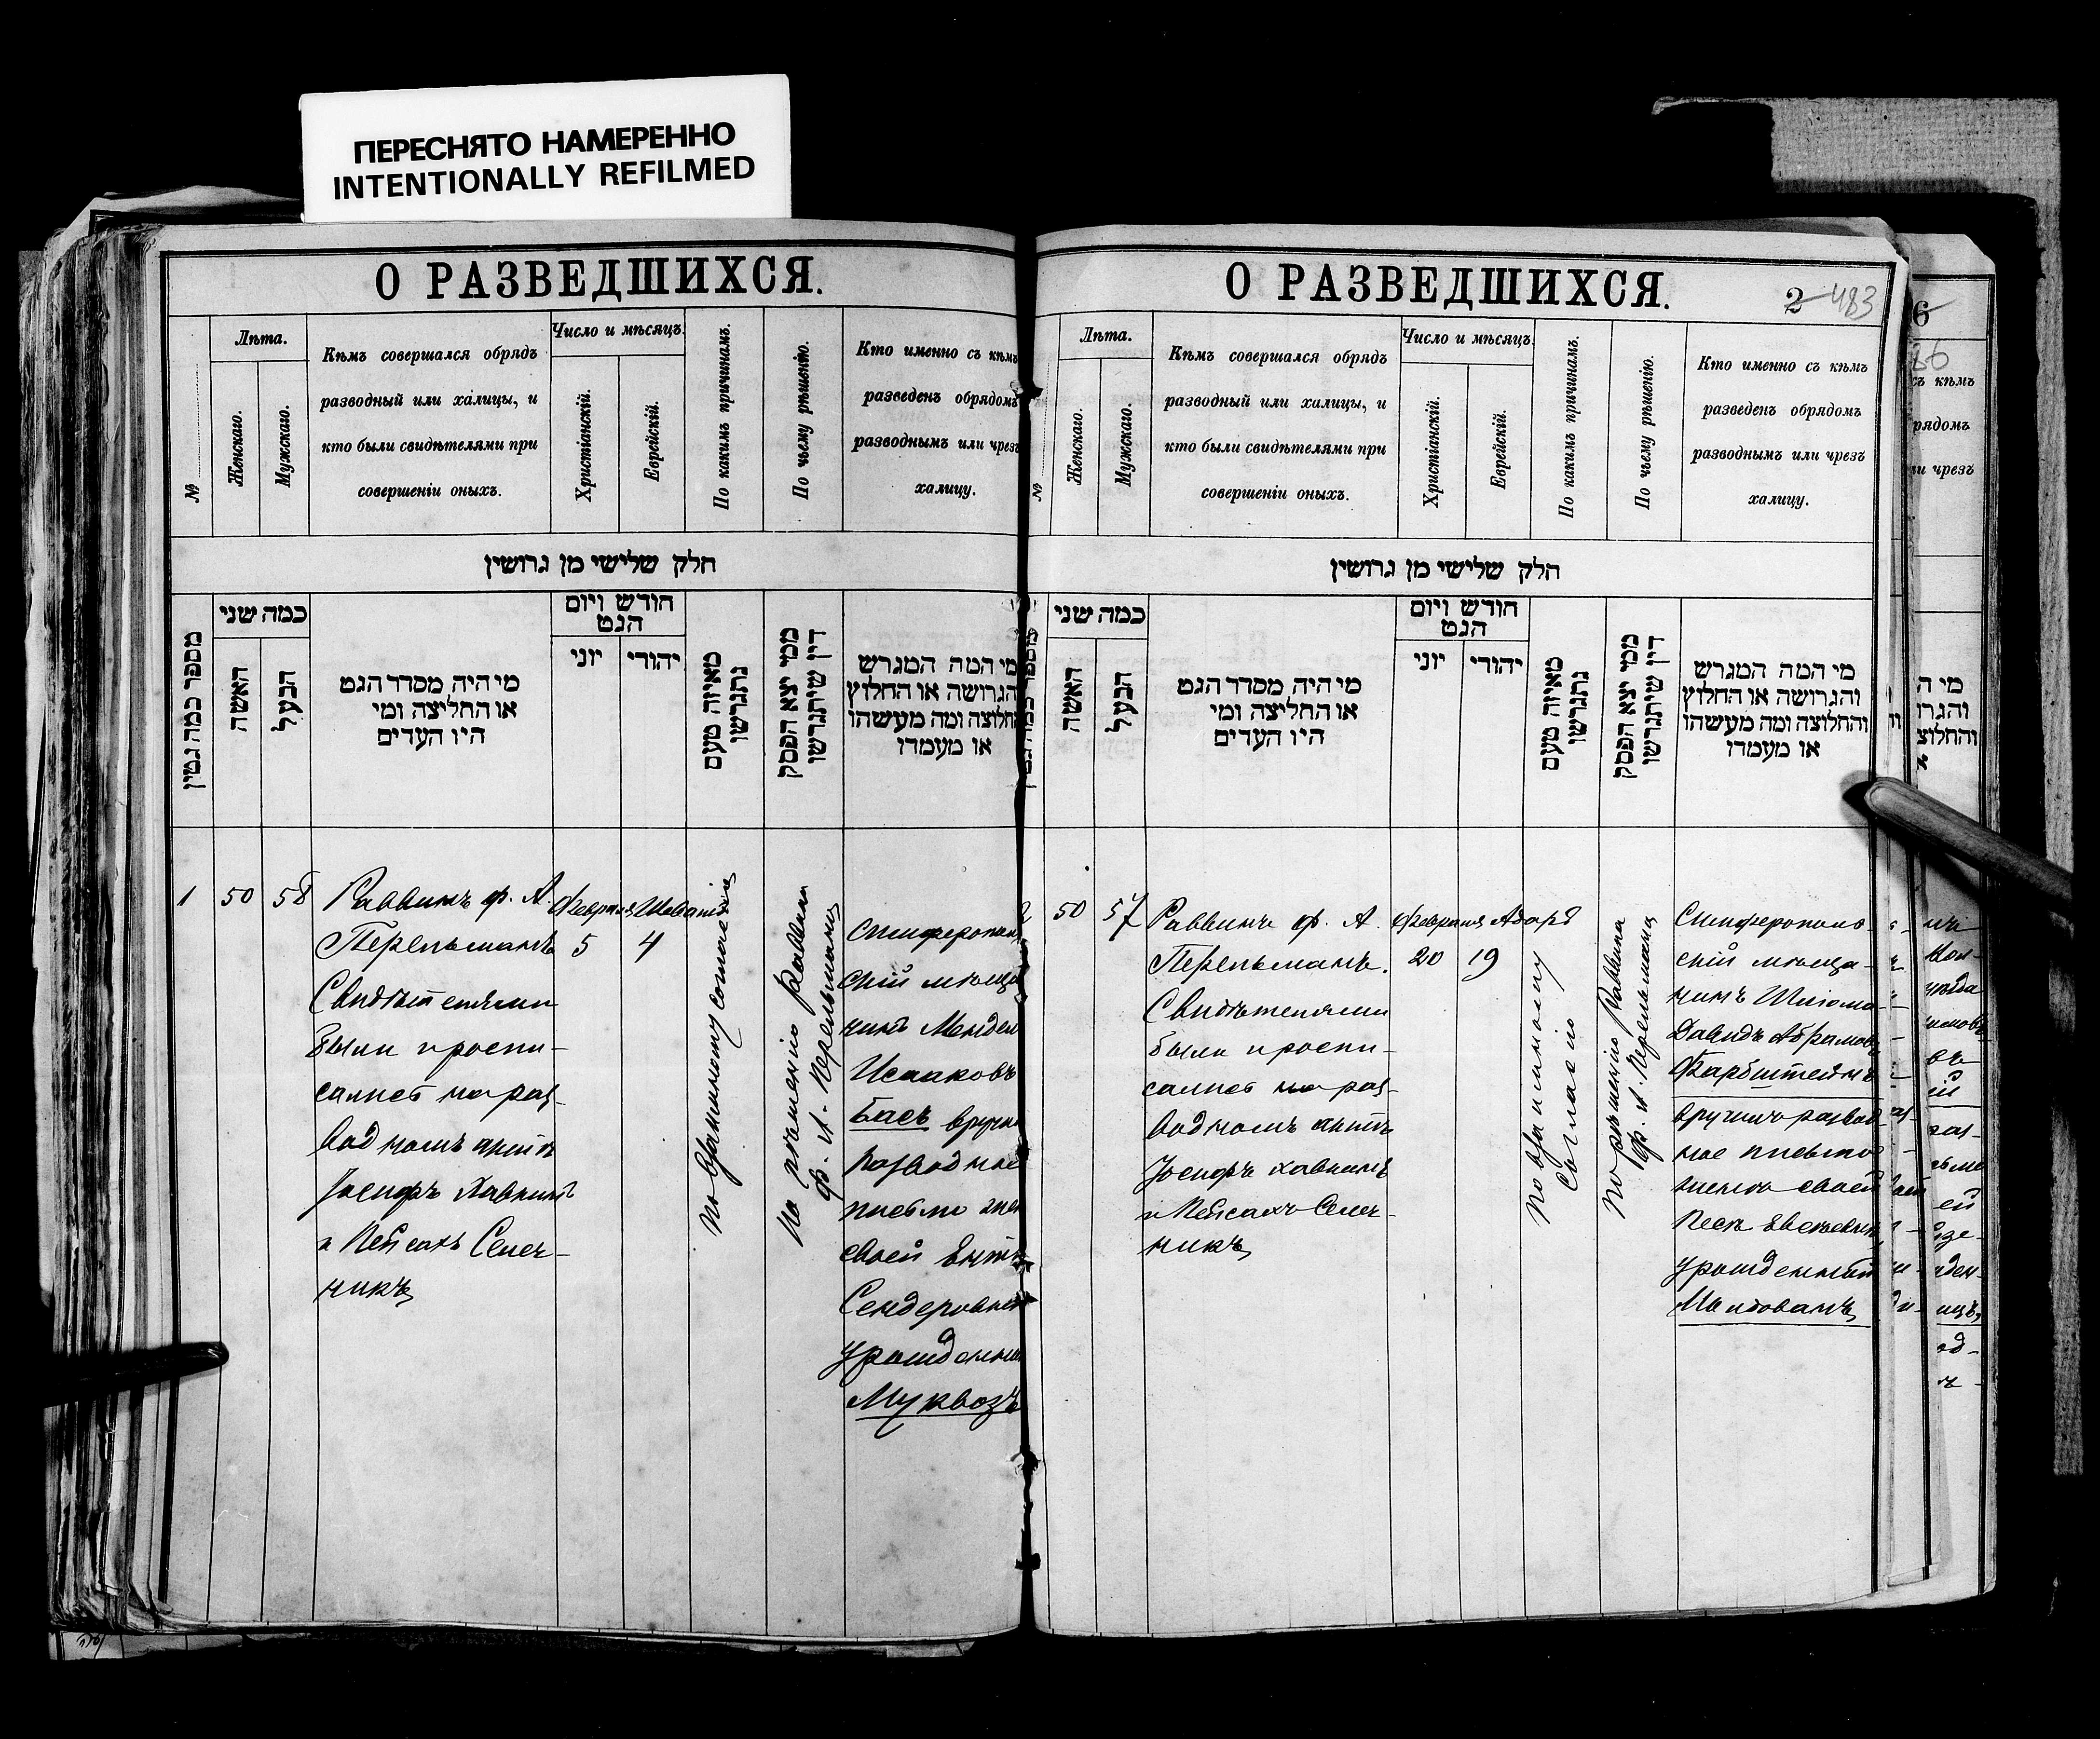 ПЕРЕСНЯТО НАМЕРЕННО
INTENTIONALLY REFILMED
О РАЗВЕДШИХСЯ.
№
Лѣта.
Женскаго.
Мужскаго.
Кѣмъ совершался обрядъ
разводный или халицы, и
кто были свидѣтелями при
совершеніи оныхъ.
Число и мѣсяцъ.
Христіанскій.
Еврейскій.
По какимъ причинамъ.
По чьему рѣшенію.
Кто именно съ кѣмъ
разведенъ обрядомъ
разводнымъ или чрезъ
халицу.
חלק שלישי מן גרושין
מספר כמה גטין
כמה שני
האשה
הבעל
מי היה מסדר הגט
או החליצה ומי
היו העדים
חודש ויום
הגט
יוני
יהודי
מאיזה טעם
נתגרשו
ממי יצא הפסק
דין שיתגרשו
מי המה המגרש
והגרושה או החלוץ
והחלוצה ומה מעשהו
או מעמדו
1
50
58
Раввинъ ф. А.
Перельманъ
Свидѣтелями
были проспи-
салисъ на раз-
водномъ актѣ
Іосифъ Хавкинъ
и Пейсахъ Селеч-
никъ
Февраля
5
Шеватъ
4
По взаимному согласію
По рѣшенію Раввина
Ф. А. Перельмана
Симферополь
скій мѣща
нинъ Мендель
Исааковъ
Басъ вручи
разводное
письмо жен
своей
Сендеровнѣ
урожденной
Муквозъ
О РАЗВЕДШИХСЯ.
2 483
№
Лѣта.
Женскаго.
Мужскаго.
Кѣмъ совершался обрядъ
разводный или халицы, и
кто были свидѣтелями при
совершеніи оныхъ.
Число и мѣсяцъ.
Христіанскій.
Еврейскій.
По какимъ причинамъ.
По чьему рѣшенію.
Кто именно съ кѣмъ
разведенъ обрядомъ
разводнымъ или чрезъ
халицу.
חלק שלישי מן גרושין
כמה שני
האשה
הבעל
מי היה מסדר הגט
או החליצה ומי
היו העדים
חודש ויום
הגט
יוני
יהודי
מאיזה טעם
נתגרשו
ממי יצא הפסק
דין שיתגרשו
מי המה המגרש
והגרושה או החלוץ
והחלוצה ומה מעשהו
או מעמדו
2
50
57
Раввинъ ф. А.
Перельманъ.
Свидѣтелями
были проспи-
салисъ на раз-
водномъ актѣ
Іосифъ Хавкинъ
и Пейсахъ Селеч-
никъ
Февраля
20
Адаръ
19
По взаимному
согласію
По рѣшенію Раввина
Ф. А. Перельмана
Симферополь-
скій мѣща-
нинъ Шліома-
Давидъ Абрамовъ
Фарбштейнъ
вручилъ развод-
ное письмо
женѣ своей
Песѣ
урожденной
Молдованъ
6
съ кѣмъ
рядомъ
ли чрезъ
מי ה
והגרו
והחלוצ